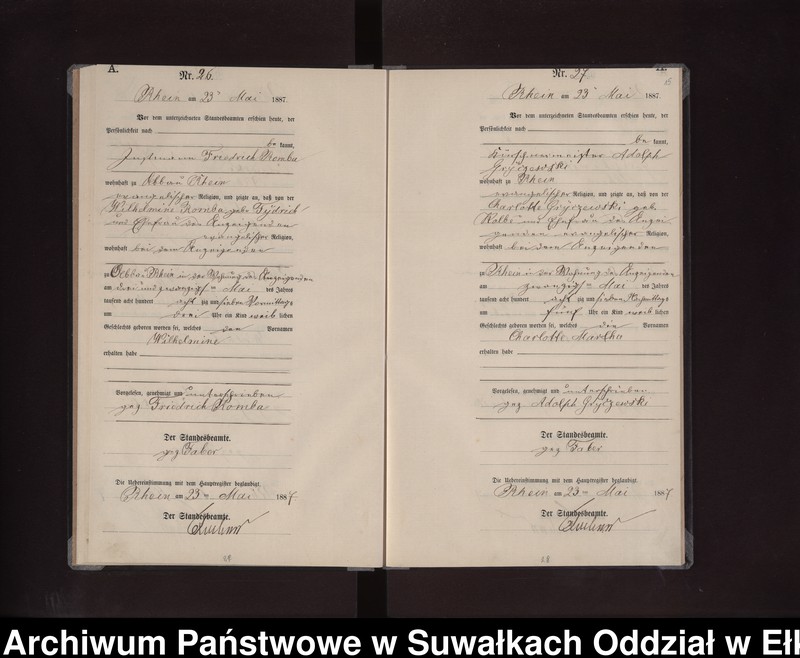 A.
Nr. 26.
Rhein am 23ten Mai 1887.
Vor dem unterzeichneten Standesbeamten erschien heute, der
Persönlichkeit nach
be kannt,
Friedrich Romba
wohnhaft zu Abbau Rhein
evangelischer Religion, und zeigte an, daß von der
Wilhelmine Romba geb.
und Ehefrau des Anzeigenden
evangelischer Religion,
wohnhaft bei dem Anzeigenden
zu Abbau Rhein in der Wohnung des Anzeigenden
am drei und zwanzigsten Mai des Jahres
tausend acht hundert acht zig und sieben Vormittags
um drei Uhr ein Kind weib lichen
Geschlechts geboren worden sei, welches den Vornamen
Wilhelmine
erhalten habe
Vorgelesen, genehmigt und unterschrieben
gez. Friedrich Romba
Der Standesbeamte.
gez. Faber
Die Uebereinstimmung mit dem Hauptregister beglaubigt.
Rhein am 23ten Mai 1887
Der Standesbeamte.
Nr. 27
Rhein am 23ten Mai 1887.
Vor dem unterzeichneten Standesbeamten erschien heute, der
Persönlichkeit nach
be kannt,
Kürschnermeister Adolph
Gryczewski
wohnhaft zu Rhein
evangelischer Religion, und zeigte an, daß von der
Charlotte Gryczewski geb.
Kolbe und Ehefrau des Anzei
genden evangelischer Religion,
wohnhaft bei dem Anzeigenden
zu Rhein in der Wohnung des Anzeigenden
am zwanzigsten Mai des Jahres
tausend acht hundert acht zig und sieben Nachmittags
um fünf Uhr ein Kind weib lichen
Geschlechts geboren worden sei, welches die Vornamen
Charlotte Martha
erhalten habe
Vorgelesen, genehmigt und unterschrieben
gez. Adolph Gryczewski
Der Standesbeamte.
gez. Faber
Die Uebereinstimmung mit dem Hauptregister beglaubigt.
Rhein am 23ten Mai 1887
Der Standesbeamte.
Archiwum Państwowe w Suwałkach Oddział w Ełk